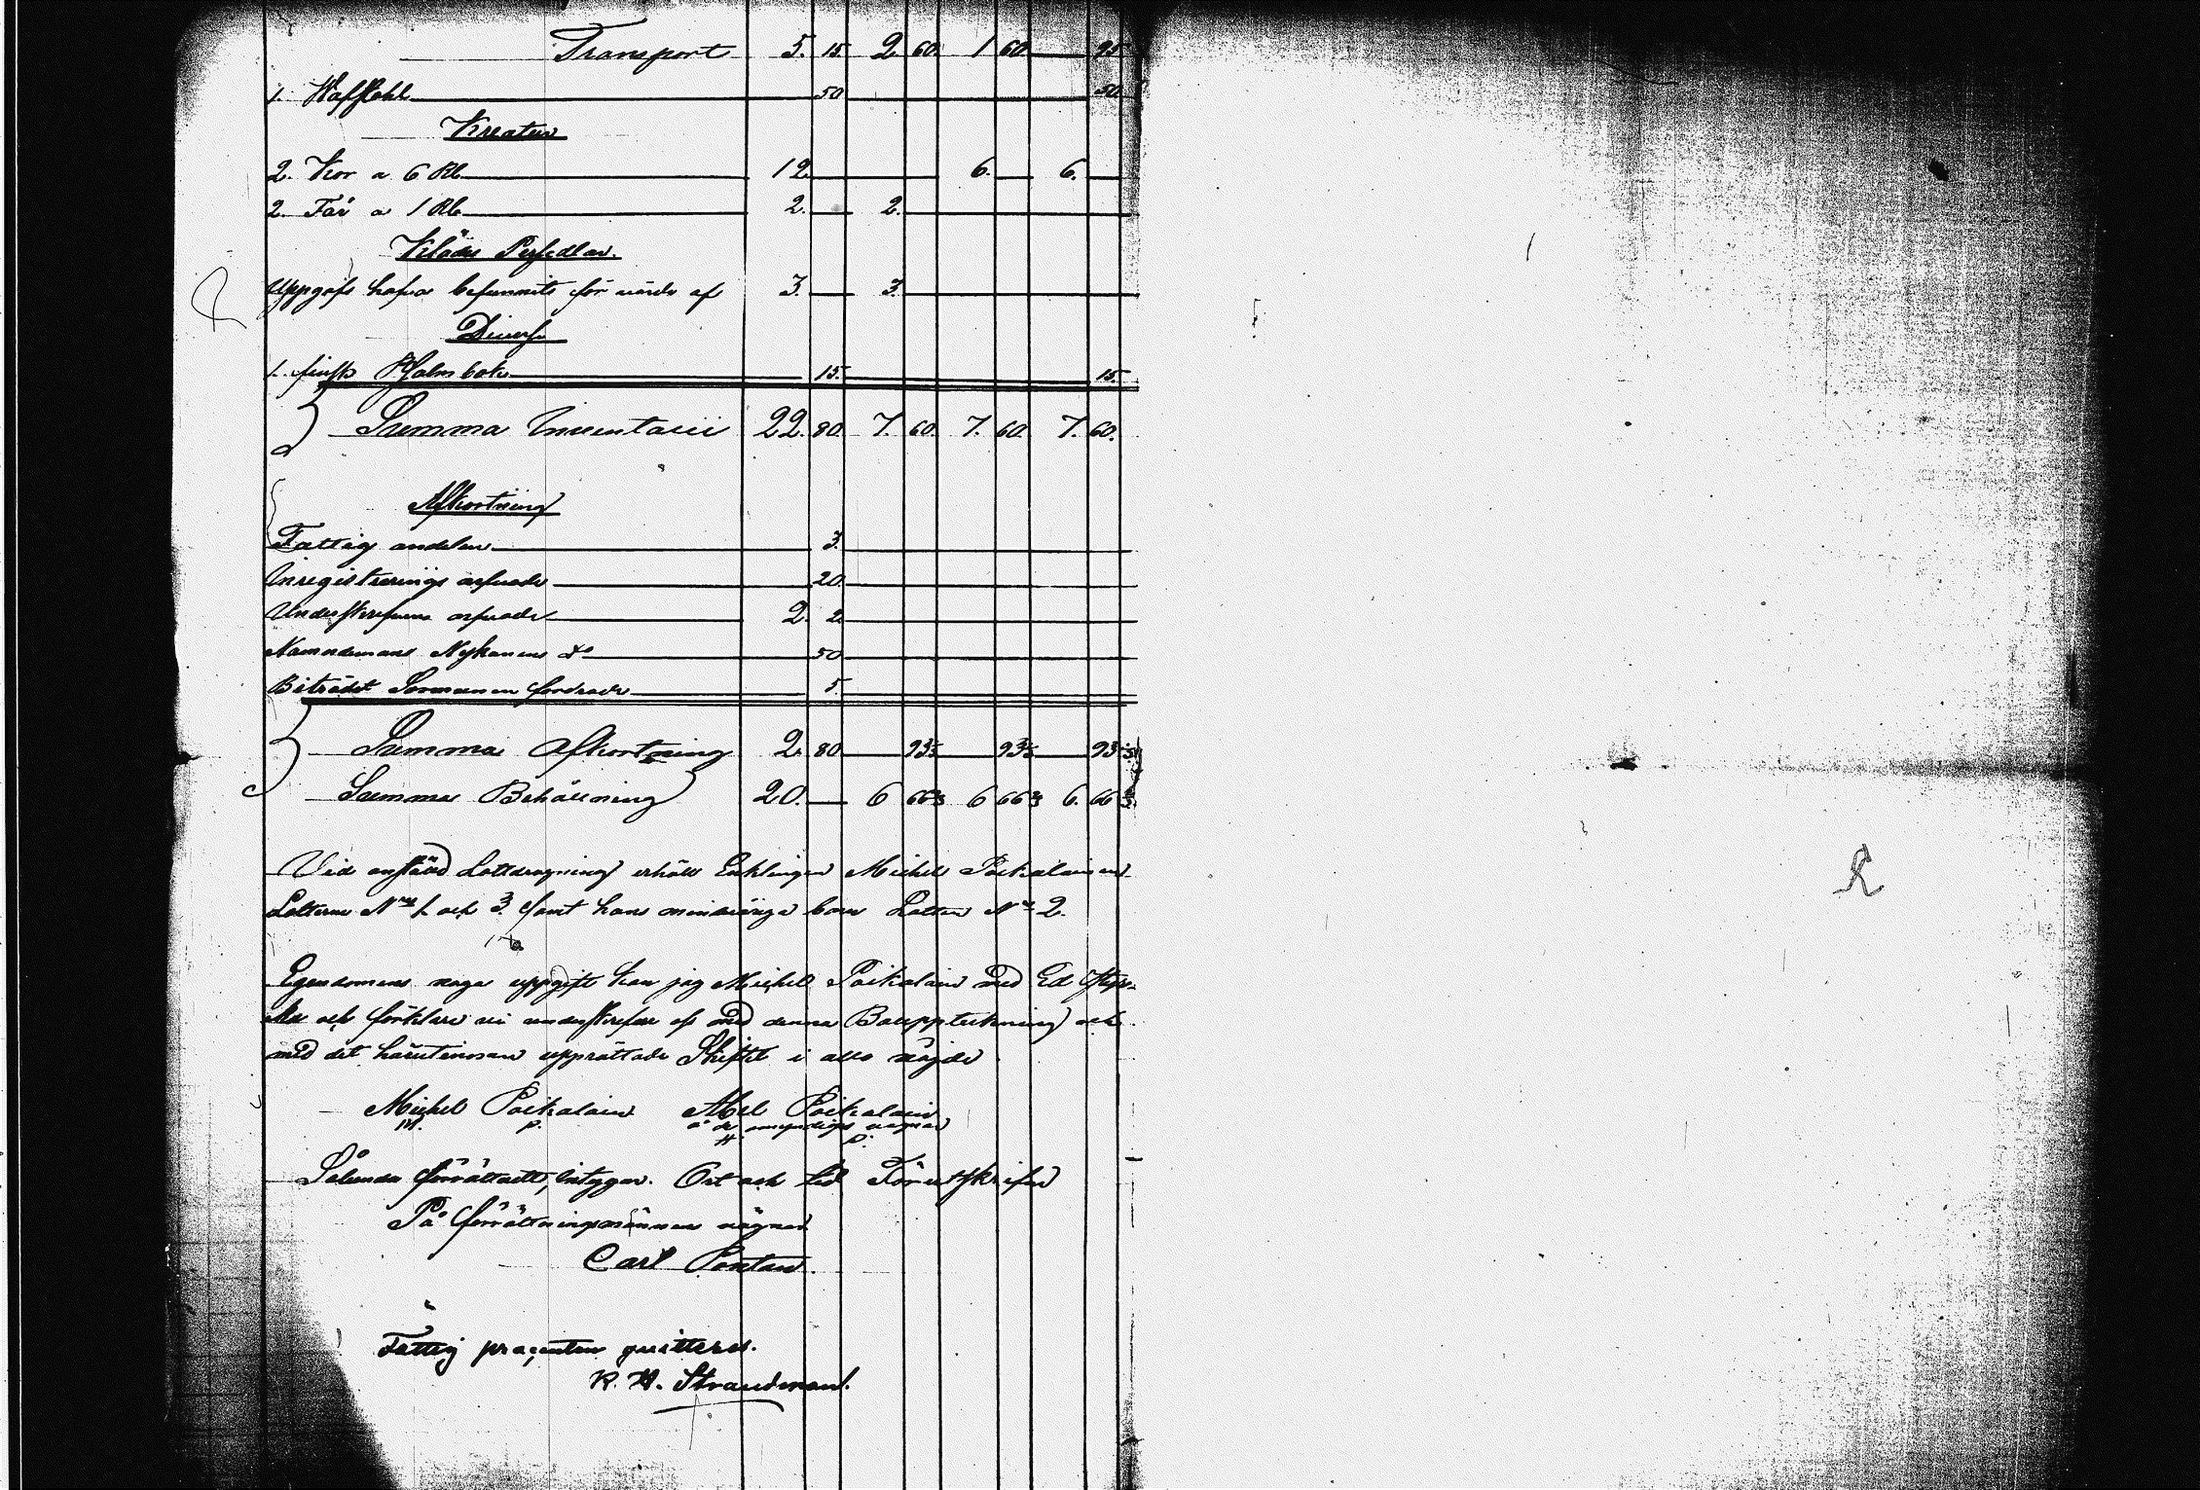 Transport 5. 15 2 60 1 60 95
1. Wäfstohl 50 50
Kreatur
2. Kor a 6 Rb 12. 6. 6.
2. Får a 1 Rb 2. 2.
Kläde Persedlar.
Uppgafs hafva befunnits för värde af 3. 3.
Diverse
1. finsk Psalmbok 15. 15.
Summa Inventarii 22. 80. 7. 60. 7. 60. 7. 60.
Afkortning
Fattig andelen 3.
Inregistrerings arfvode 20.
Underskrefvens arfvode 2. 2.
Nämndemans Nykänens do 50
Biträdet Sormunen fordrade 5.
Summa Afkortning 2. 80 93⅓ 93⅓ 93⅓
Summa Behållning 20. 6 66⅔ 6 66⅔ 6. 66⅔
Vid anstäld Lottdragning erhöll Enklingen Michel Poikalainen
Lotterne No 1. och 3. samt hans minderåriga barn Lotten No 2.
Egendomens noga uppgift kan jag Michel Poikalain med Ed styr-
ka och förklare vi underskrefne oss med denna Bouppteckning och
med det härutinnan upprättade Skiftet i allo nöjde
Michel Poikalain Abel Poikalain
M. P. å de omyndiges vägnar
P.
Sålunda förrättadt, intygar. Ort och tid Förutskrifne
På förrättningsmännens vägnar
Carl Pontan.
Fattig procenten quitteras.
K. H. Strandman.